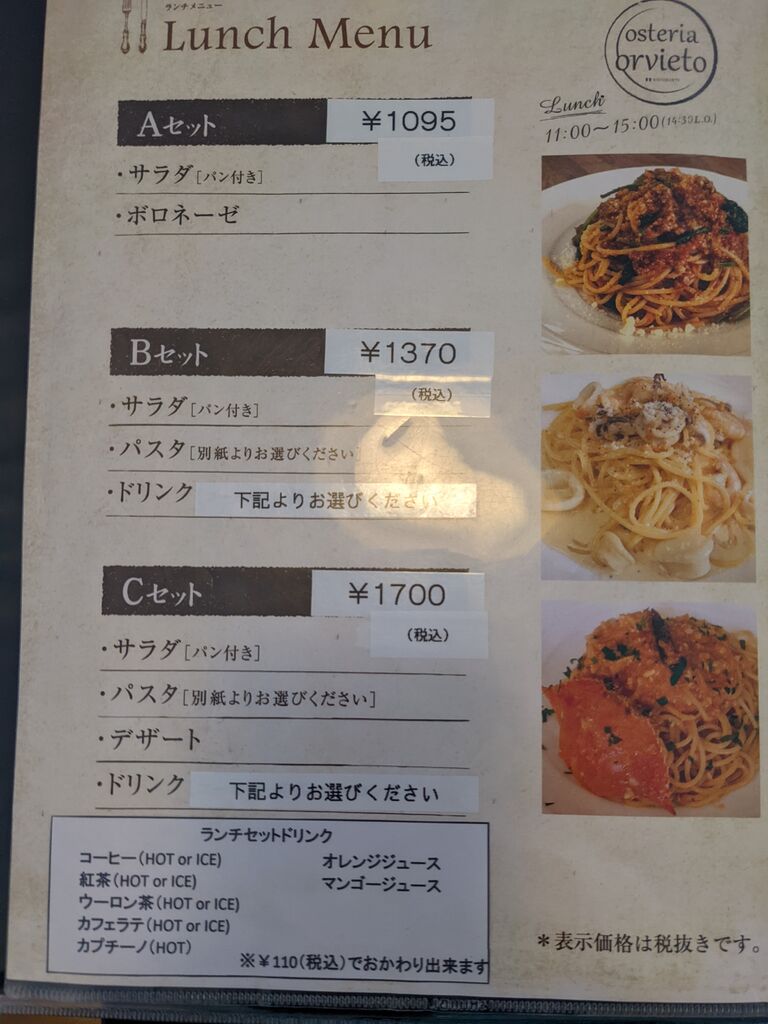 ランチメニュー
Lunch Menu
osteria
orvieto
Lunch
11:00～15:00(14:30L.O.)
Aセット ¥1095
(税込)
・サラダ[パン付き]
・ボロネーゼ
Bセット ¥1370
(税込)
・サラダ[パン付き]
・パスタ[別紙よりお選びください]
・ドリンク 下記よりお選びください
Cセット ¥1700
(税込)
・サラダ[パン付き]
・パスタ[別紙よりお選びください]
・デザート
・ドリンク 下記よりお選びください
ランチセットドリンク
コーヒー(HOT or ICE) オレンジジュース
紅茶(HOT or ICE) マンゴージュース
ウーロン茶(HOT or ICE)
カフェラテ(HOT or ICE)
カプチーノ(HOT)
※¥110(税込)でおかわり出来ます
＊表示価格は税抜きです。